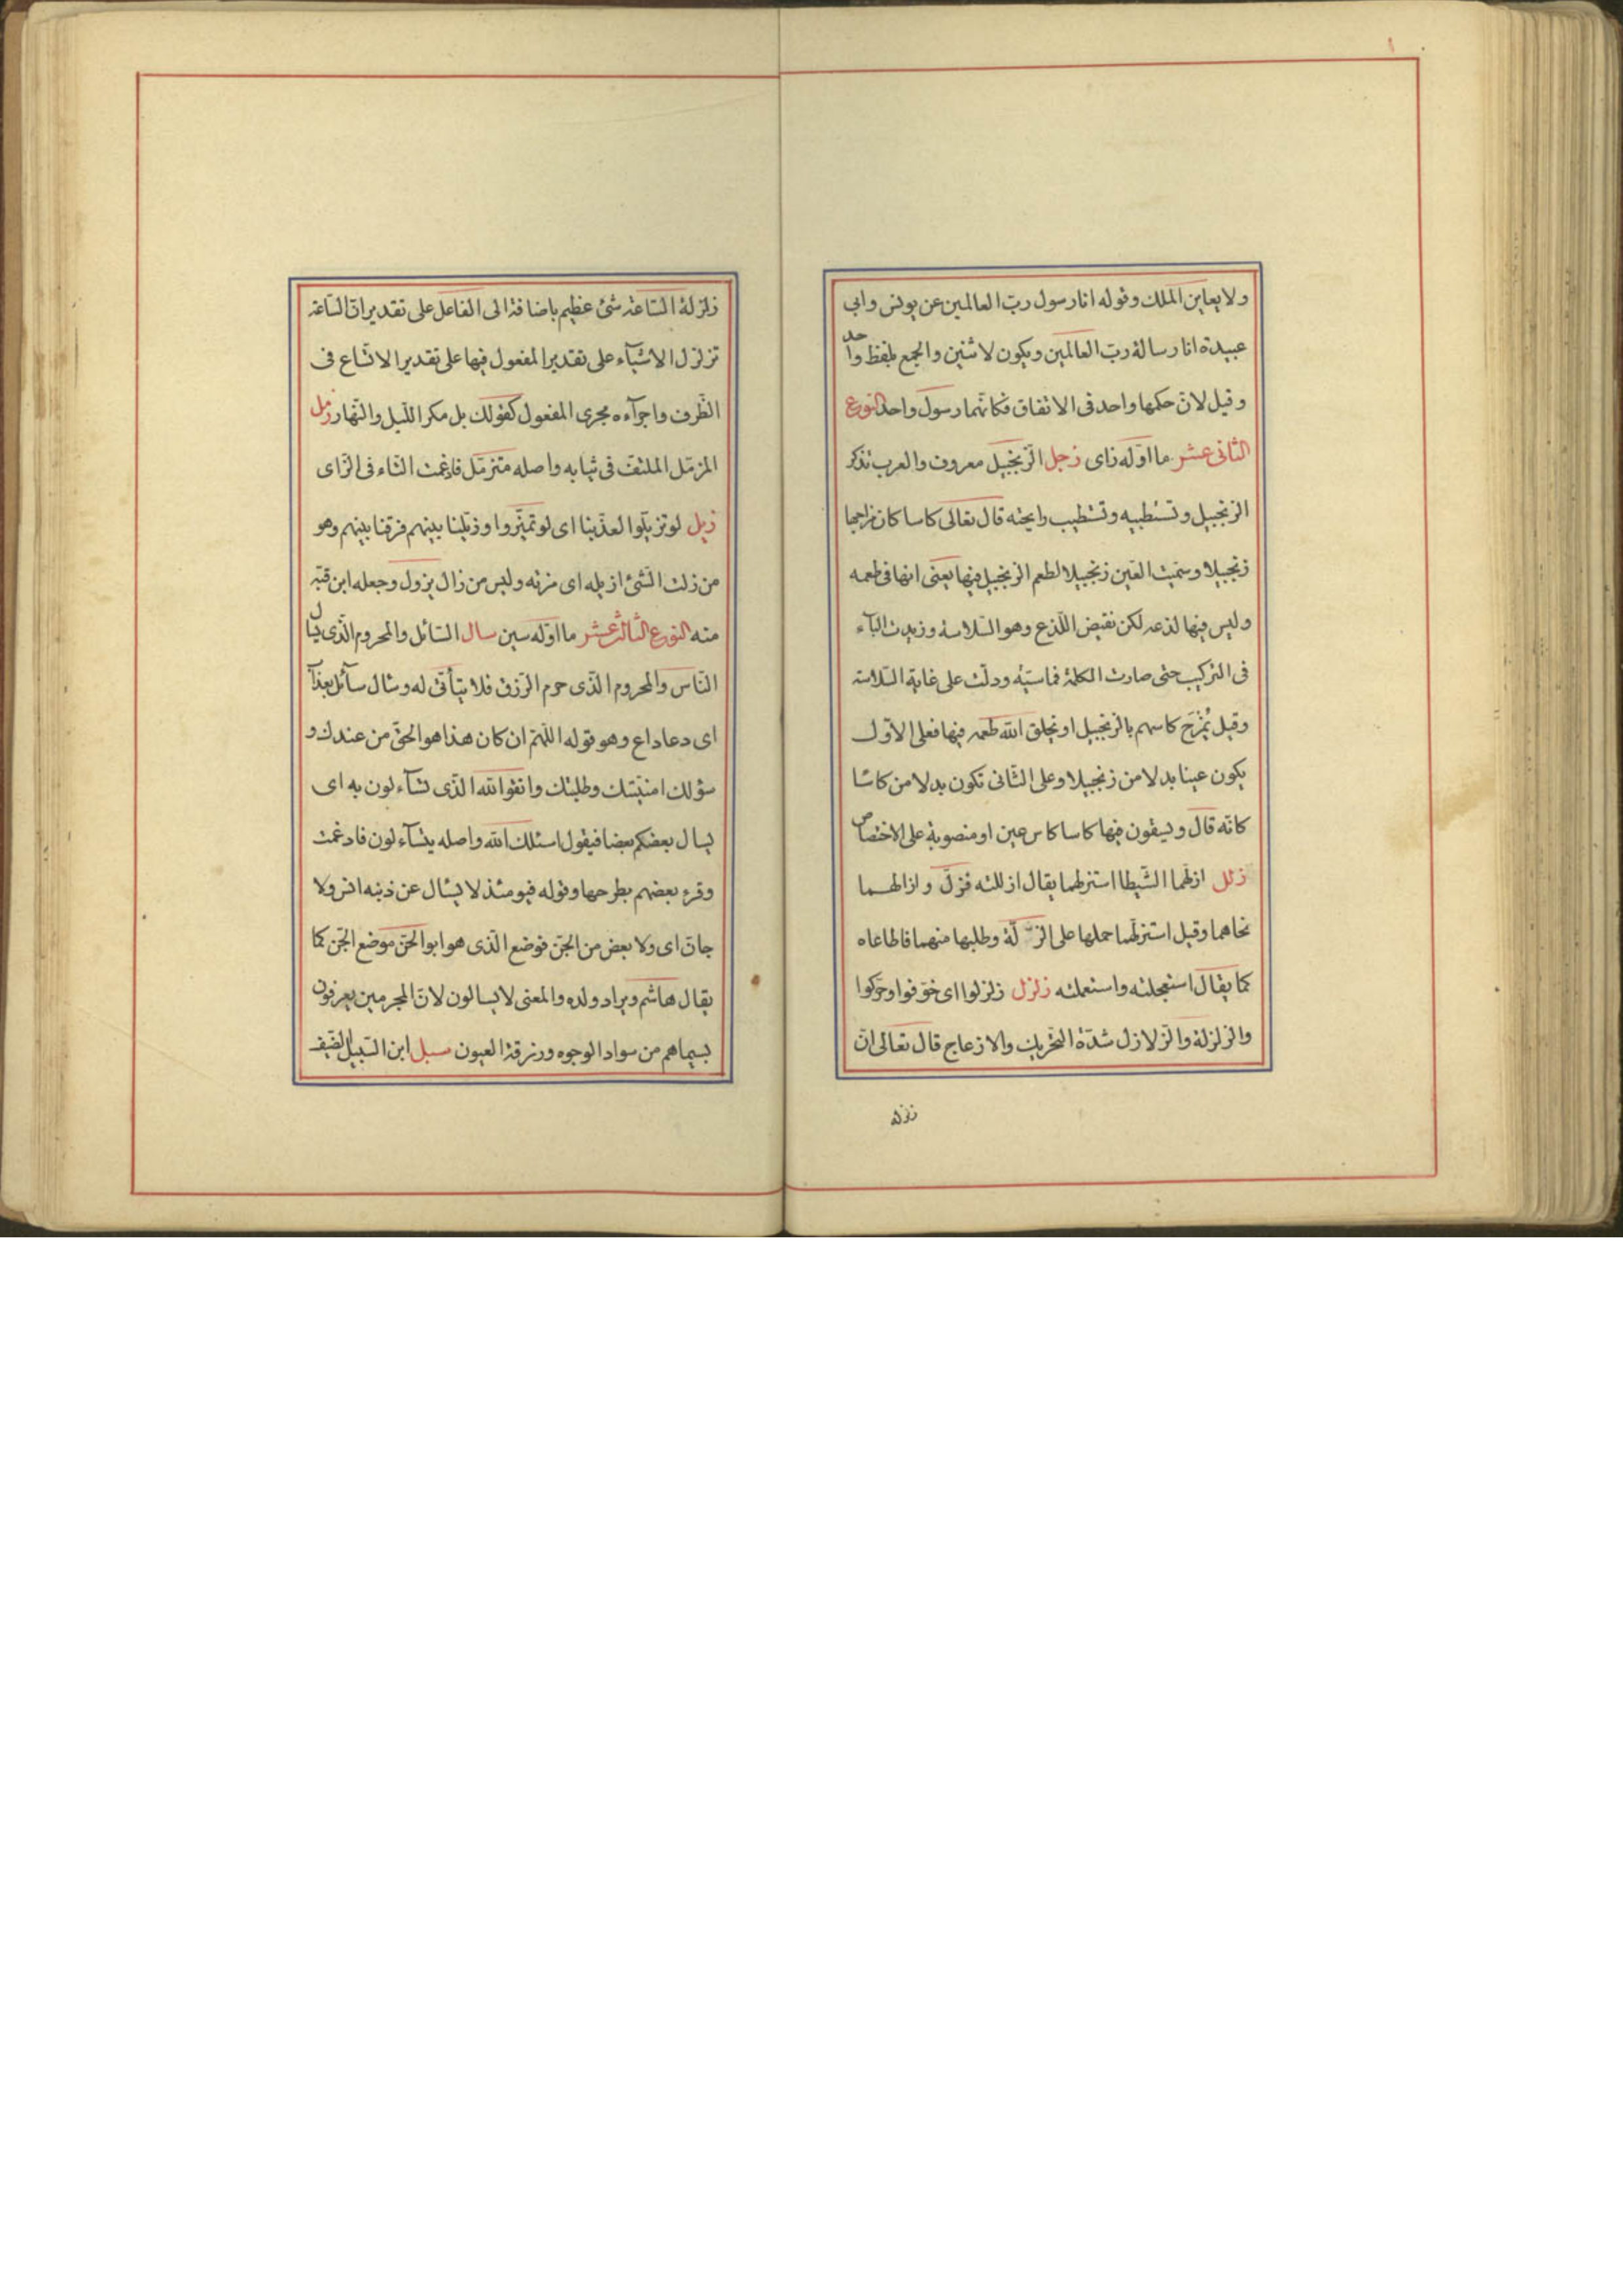 ولا يعاين الملك وقوله انا رسول ربّ العالمين عن يونس وابى
عبيدة انا رسالة ربّ العالمين ويكون لاثنين والجمع بلفظ واحد
وقيل لانّ حكمها واحد فى الاتفاق فكانّهما رسول واحد النوع
الثانى عشر ما اوّله زاى زجل الزّنجبيل معروف والعرب تذكر
الزنجبيل وتستطيبه وتستطيب رايحته قال تعالى كاسا كان مزاجها
زنجبيلا وسمّيت العين زنجبيلا لطعم الزنجبيل فيها يعنى انها فى طعمه
وليس فيها لذعه لكن نقيض اللّذع وهو السّلاسة وزيدت البآء
فى التركيب حتى صارت الكلمة خماسيّة ودلّت على غاية السّلاسة
وقيل يُمْزَج كاسهم بالزنجبيل او يخلق الله طعمه فيها فعلى الاوّل
يكون عينا بدلا من زنجبيلا وعلى الثّانى تكون بدلا من كاسًا
كانّه قال ويسقون فيها كاسا كاس عين او منصوبة على الاختصاص
زلل ازلّهما الشّيطا استزلهما يقال ازللته فزلّ وازالهما
نحاهما وقيل استزلّهما حملها على الزّلّة وطلبها منهما فاطاعاه
كما يقال استعجلته واستعملته زلزل زلزلوا اى خوّفوا وحرّكوا
والزلزلة والزّلازل شدّة التحريك والازعاج قال تعالى انّ
زلزلة
زلزلة السّاعة شئ عظيم باضافة الى الفاعل على تقدير انّ السّاعة
تزلزل الاشيآء على تقدير المفعول فيها على تقدير الاتّساع فى
الظّرف واجرآءه مجرى المفعول كقولك بل مكر اللّيل والنّهار زمل
المزمّل الملتفّ فى ثيابه واصله متزمّل فادغمت التاء فى الزّاى
زيل لو تزيّلوا لعذّبنا اى لو تميّزوا وزيّلنا بينهم فرقنا بينهم وهو
من زلت الشّئ ازيله اى مزته وليس من زال يزول وجعله ابن قتبه
منه النوع الثالث عشر ما اوّله سين سال السّائل والمحروم الّذى يسال
النّاس والمحروم الّذى حرم الرّزق فلا يتأتّى له وسال سآئل بعذآ
اى دعا داع وهو قوله اللّهمّ ان كان هذا هو الحقّ من عندك و
سؤلك امنيّتك وطلبتك واتقوا الله الّذى تسآءلون به اى
يسال بعضكم بعضا فيقول اسئلك الله واصله يتسآءلون فادغمت
وقرء بعضهم بطرحها وقوله فيومئذ لا يسال عن ذنبه انس ولا
جانّ اى ولا بعض من الجنّ فوضع الّذى هو ابو الجنّ موضع الجنّ كما
يقال هاشم ويراد ولده والمعنى لا يسالون لانّ المجرمين يعرفون
بسيماهم من سواد الوجوه وزرقة العيون سبل ابن السّبيل الضّيف